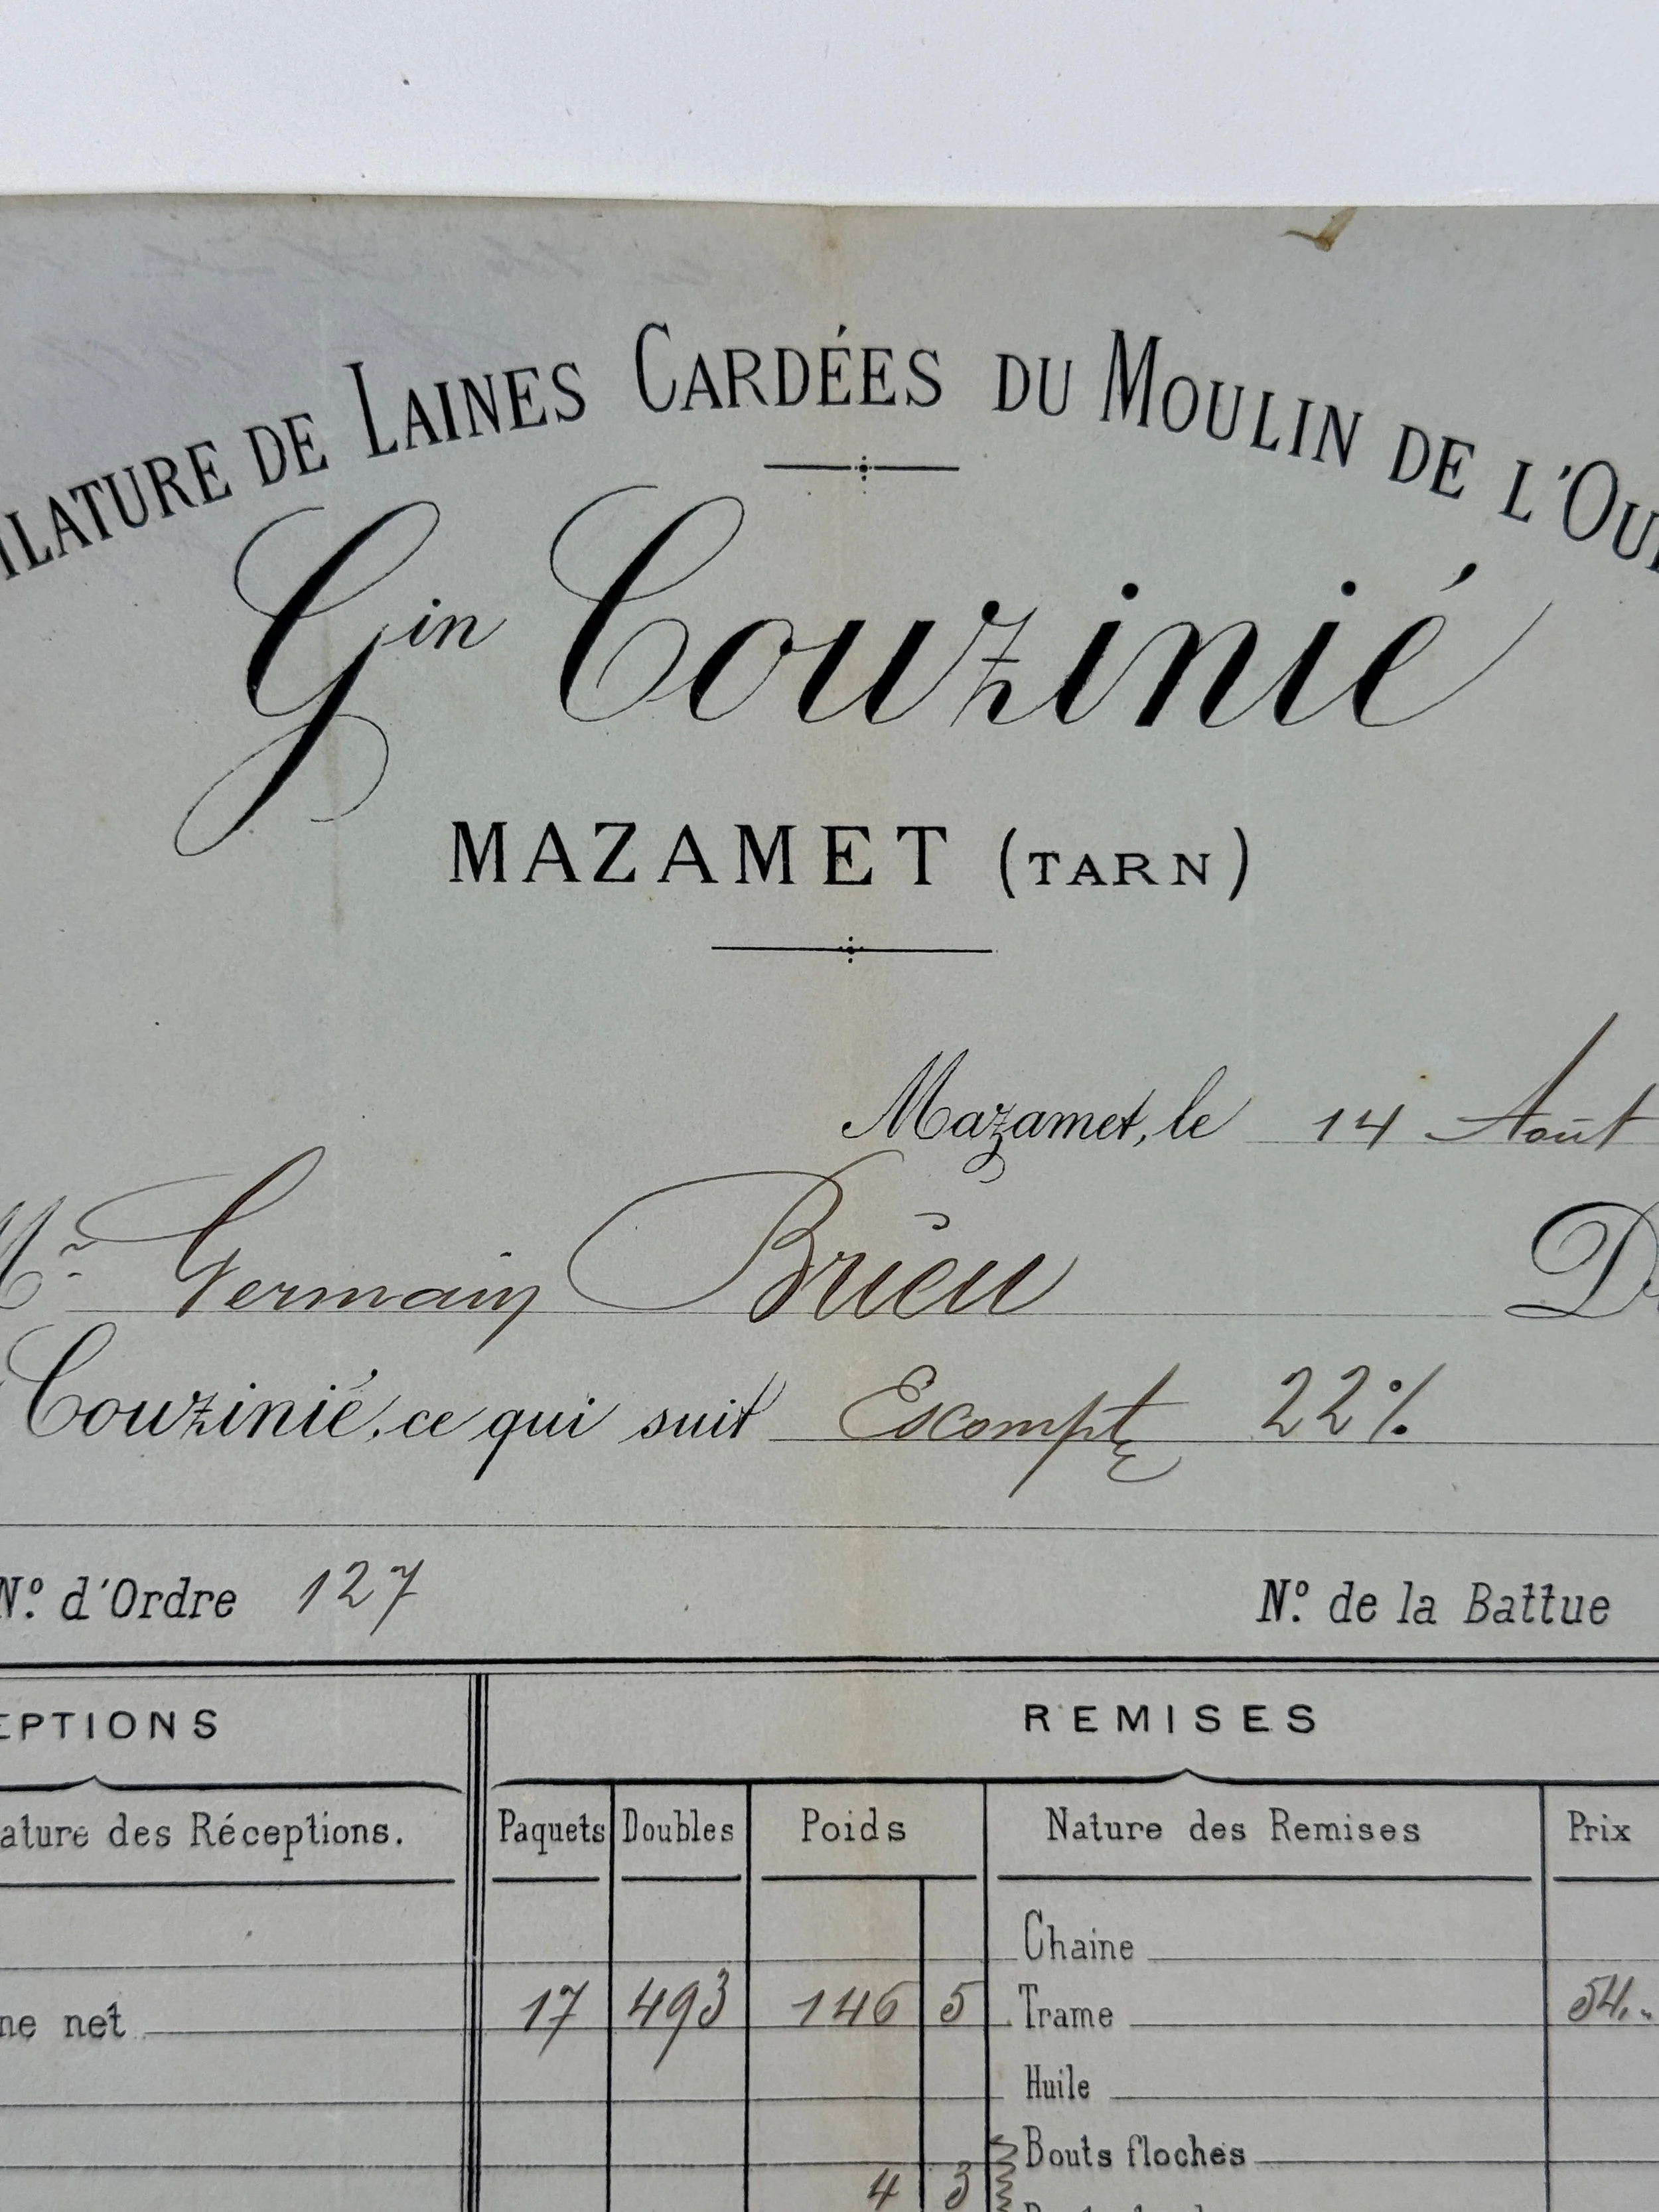 ILATURE DE LAINES CARDÉES DU MOULIN DE L'OU
Gin Couzinié
MAZAMET (TARN)
Mazamet, le 14 Août
Mr Germain Brieu D
Couzinié, ce qui suit Escompte 22%
N° d'Ordre 127 N° de la Battue
EPTIONS REMISES
ature des Réceptions. Paquets Doubles Poids Nature des Remises Prix
Chaine
ne net 17 493 146 5 Trame 54.-
Huile
Bouts floches
4 3